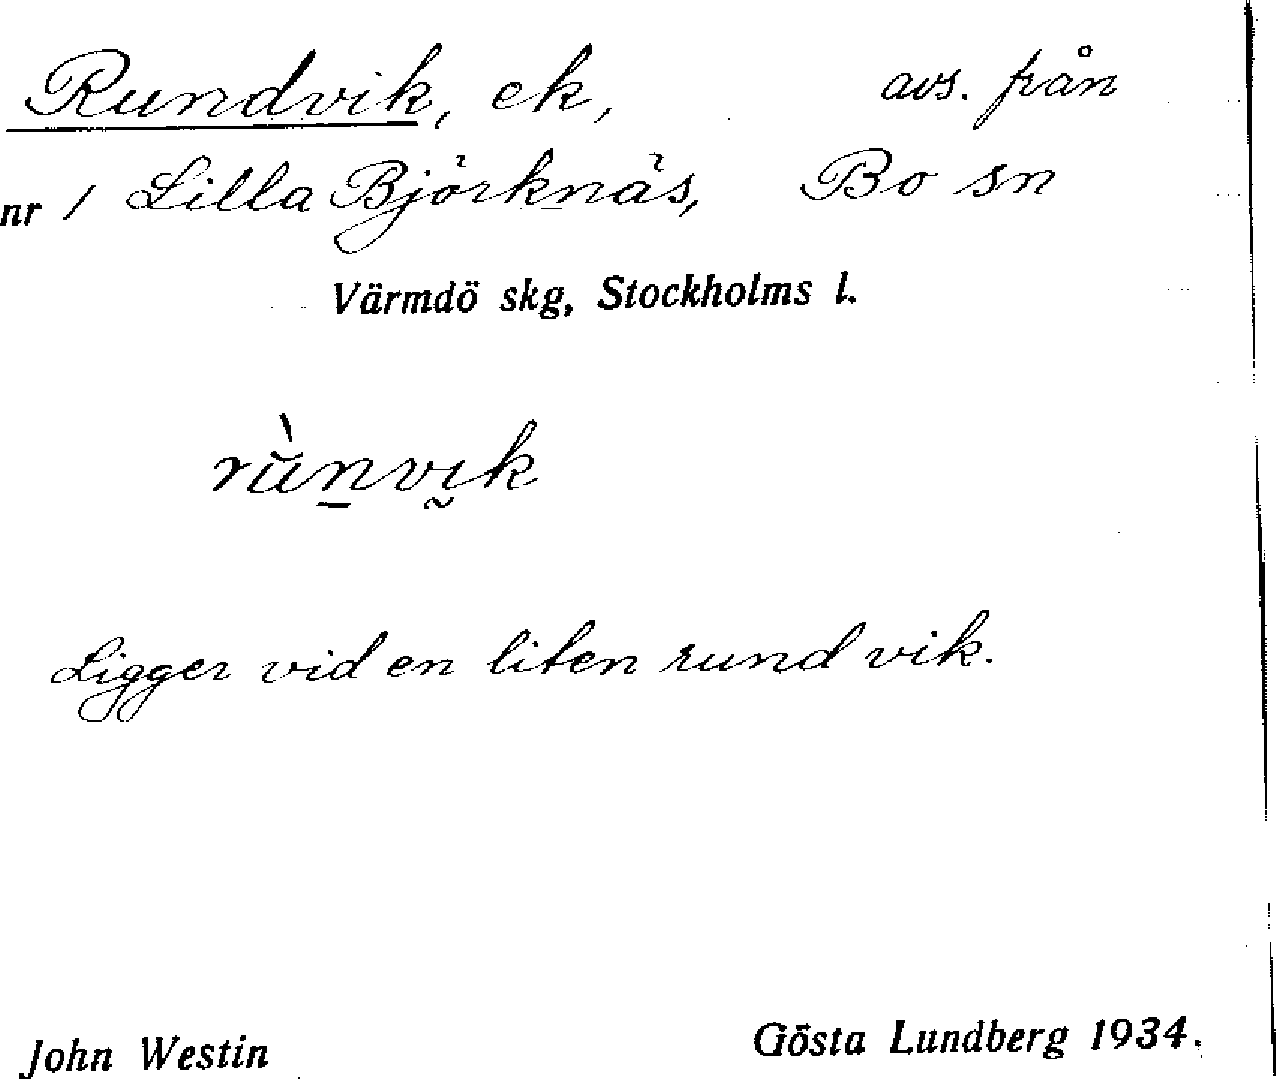 Rundvik, ek, avs. från
nr 1 Lilla Björknäs, Bo sn
Värmdö skg, Stockholms l.
rùnvik
Ligger vid en liten rund vik.
John Westin Gösta Lundberg 1934.